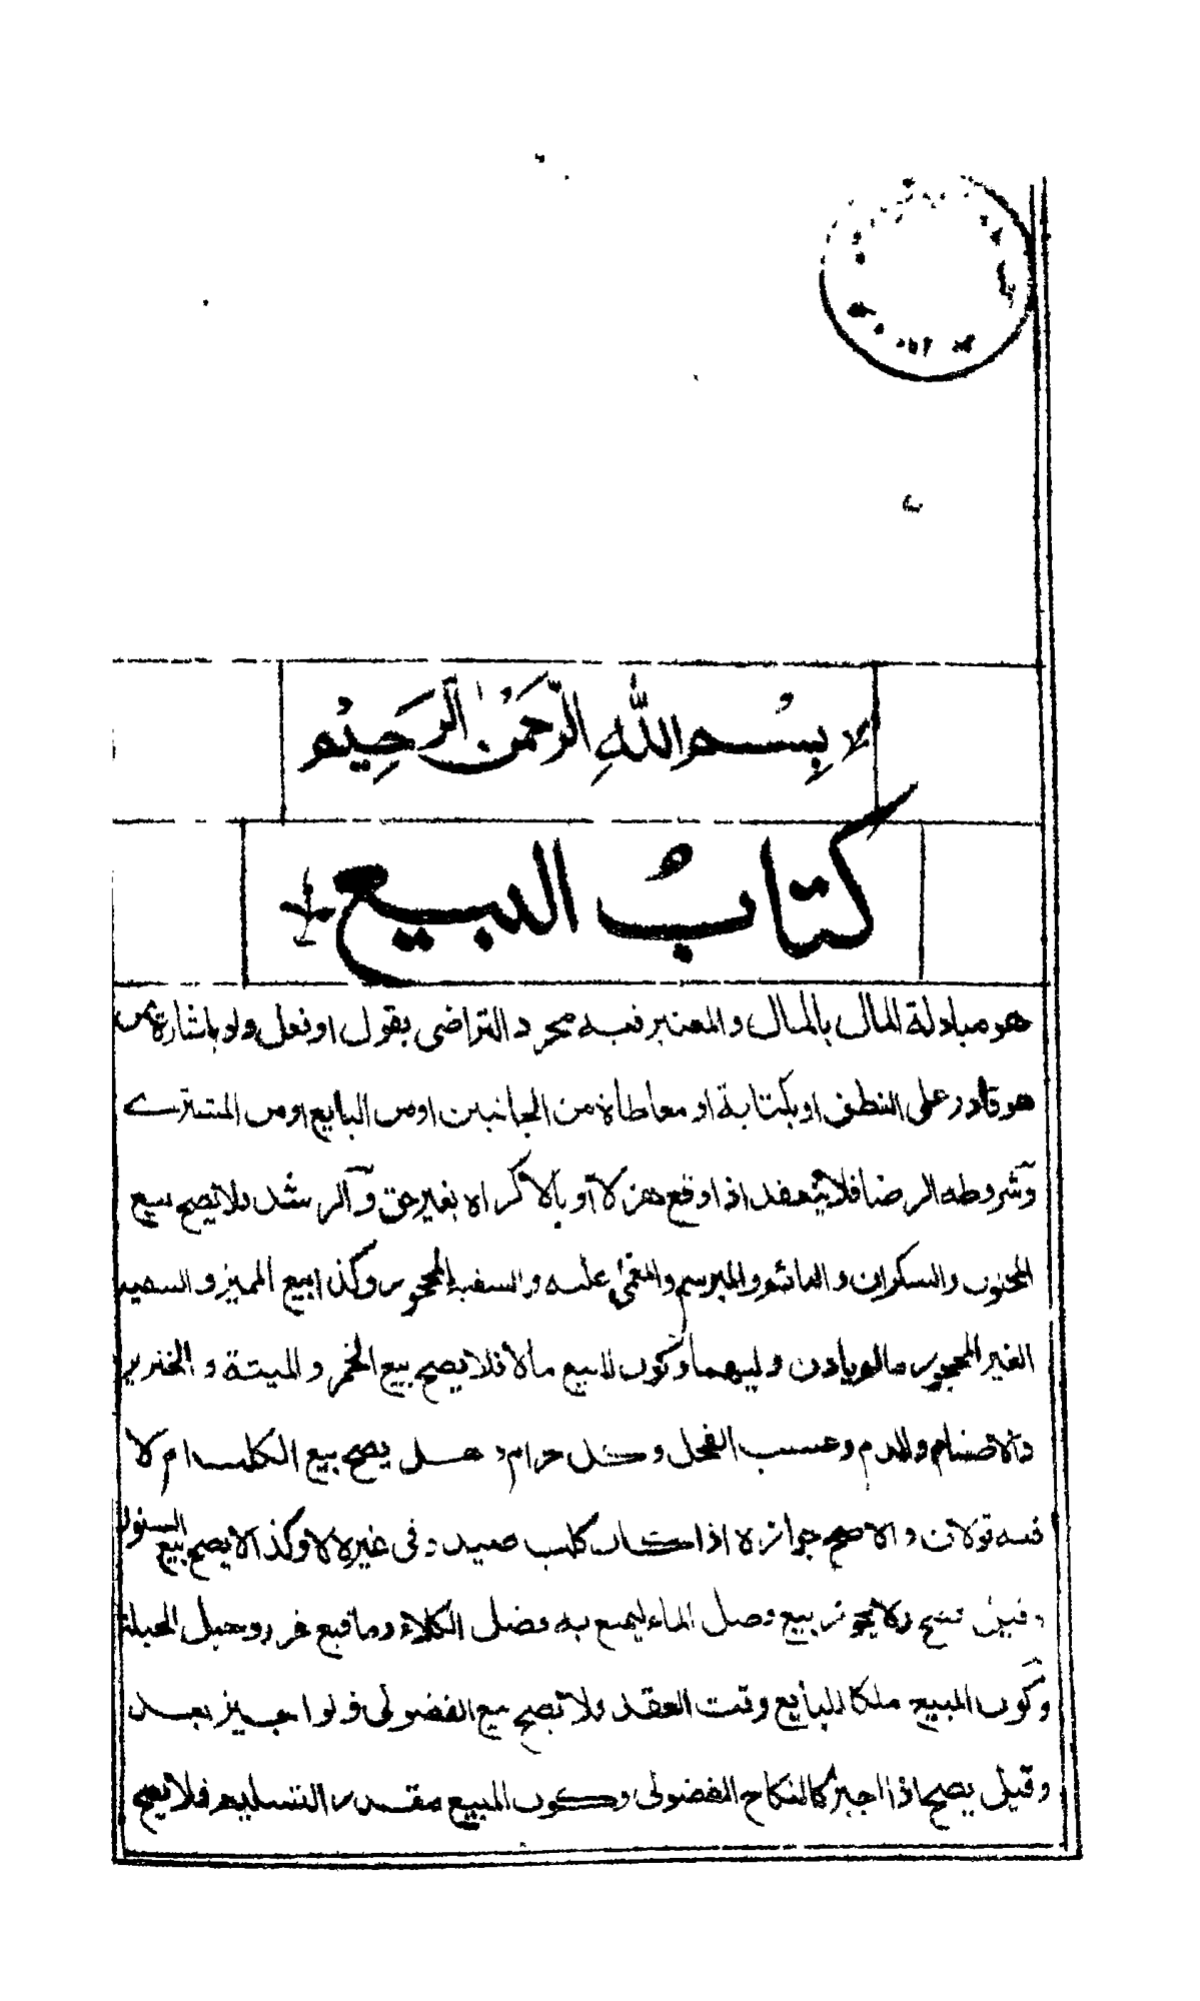 بِسْمِ اللهِ الرَّحْمَنِ الرَّحِيْمِ
كتابُ البيع
هو مبادلة المال بالمال والمعتبر فيه مجرد التراضى بقول او فعل ولو باشارة من
هو قادر على النطق او بكتابة او معاطاة من الجانبين او من البايع او من المشترے
وشروطه الرضا فلا ينعقد اذا وقع هزلا او بالاكراه بغير حق والرشد فلا يصح بيع
المجنون والسكران والمبرسم والمغمى عليه والسفيه المحجور وكذا بيع المميز والسفيه
الغير المحجور مالم ياذن وليهما وكون المبيع مالا فلا يصح بيع الخمر والميتة والخنزير
والاصنام والدم وعسب الفحل وكل حرام وهل يصح بيع الكلب ام لا
فيه قولان والاصح جوازه اذا كان كلب صيد وفى غيره لا وكذا لا يصح بيع السنور
وقيل يصح ولا يجوز بيع فضل الماء ليمنع به فضل الكلاء وما فيه غرر وحبل الحبلة
وكون المبيع ملكا للبايع وقت العقد ولا يصح بيع الفضولى ولو اجيز بعد
وقيل يصح اذا اجيز كالنكاح الفضولى وكون المبيع مقدور التسليم فلا يصح